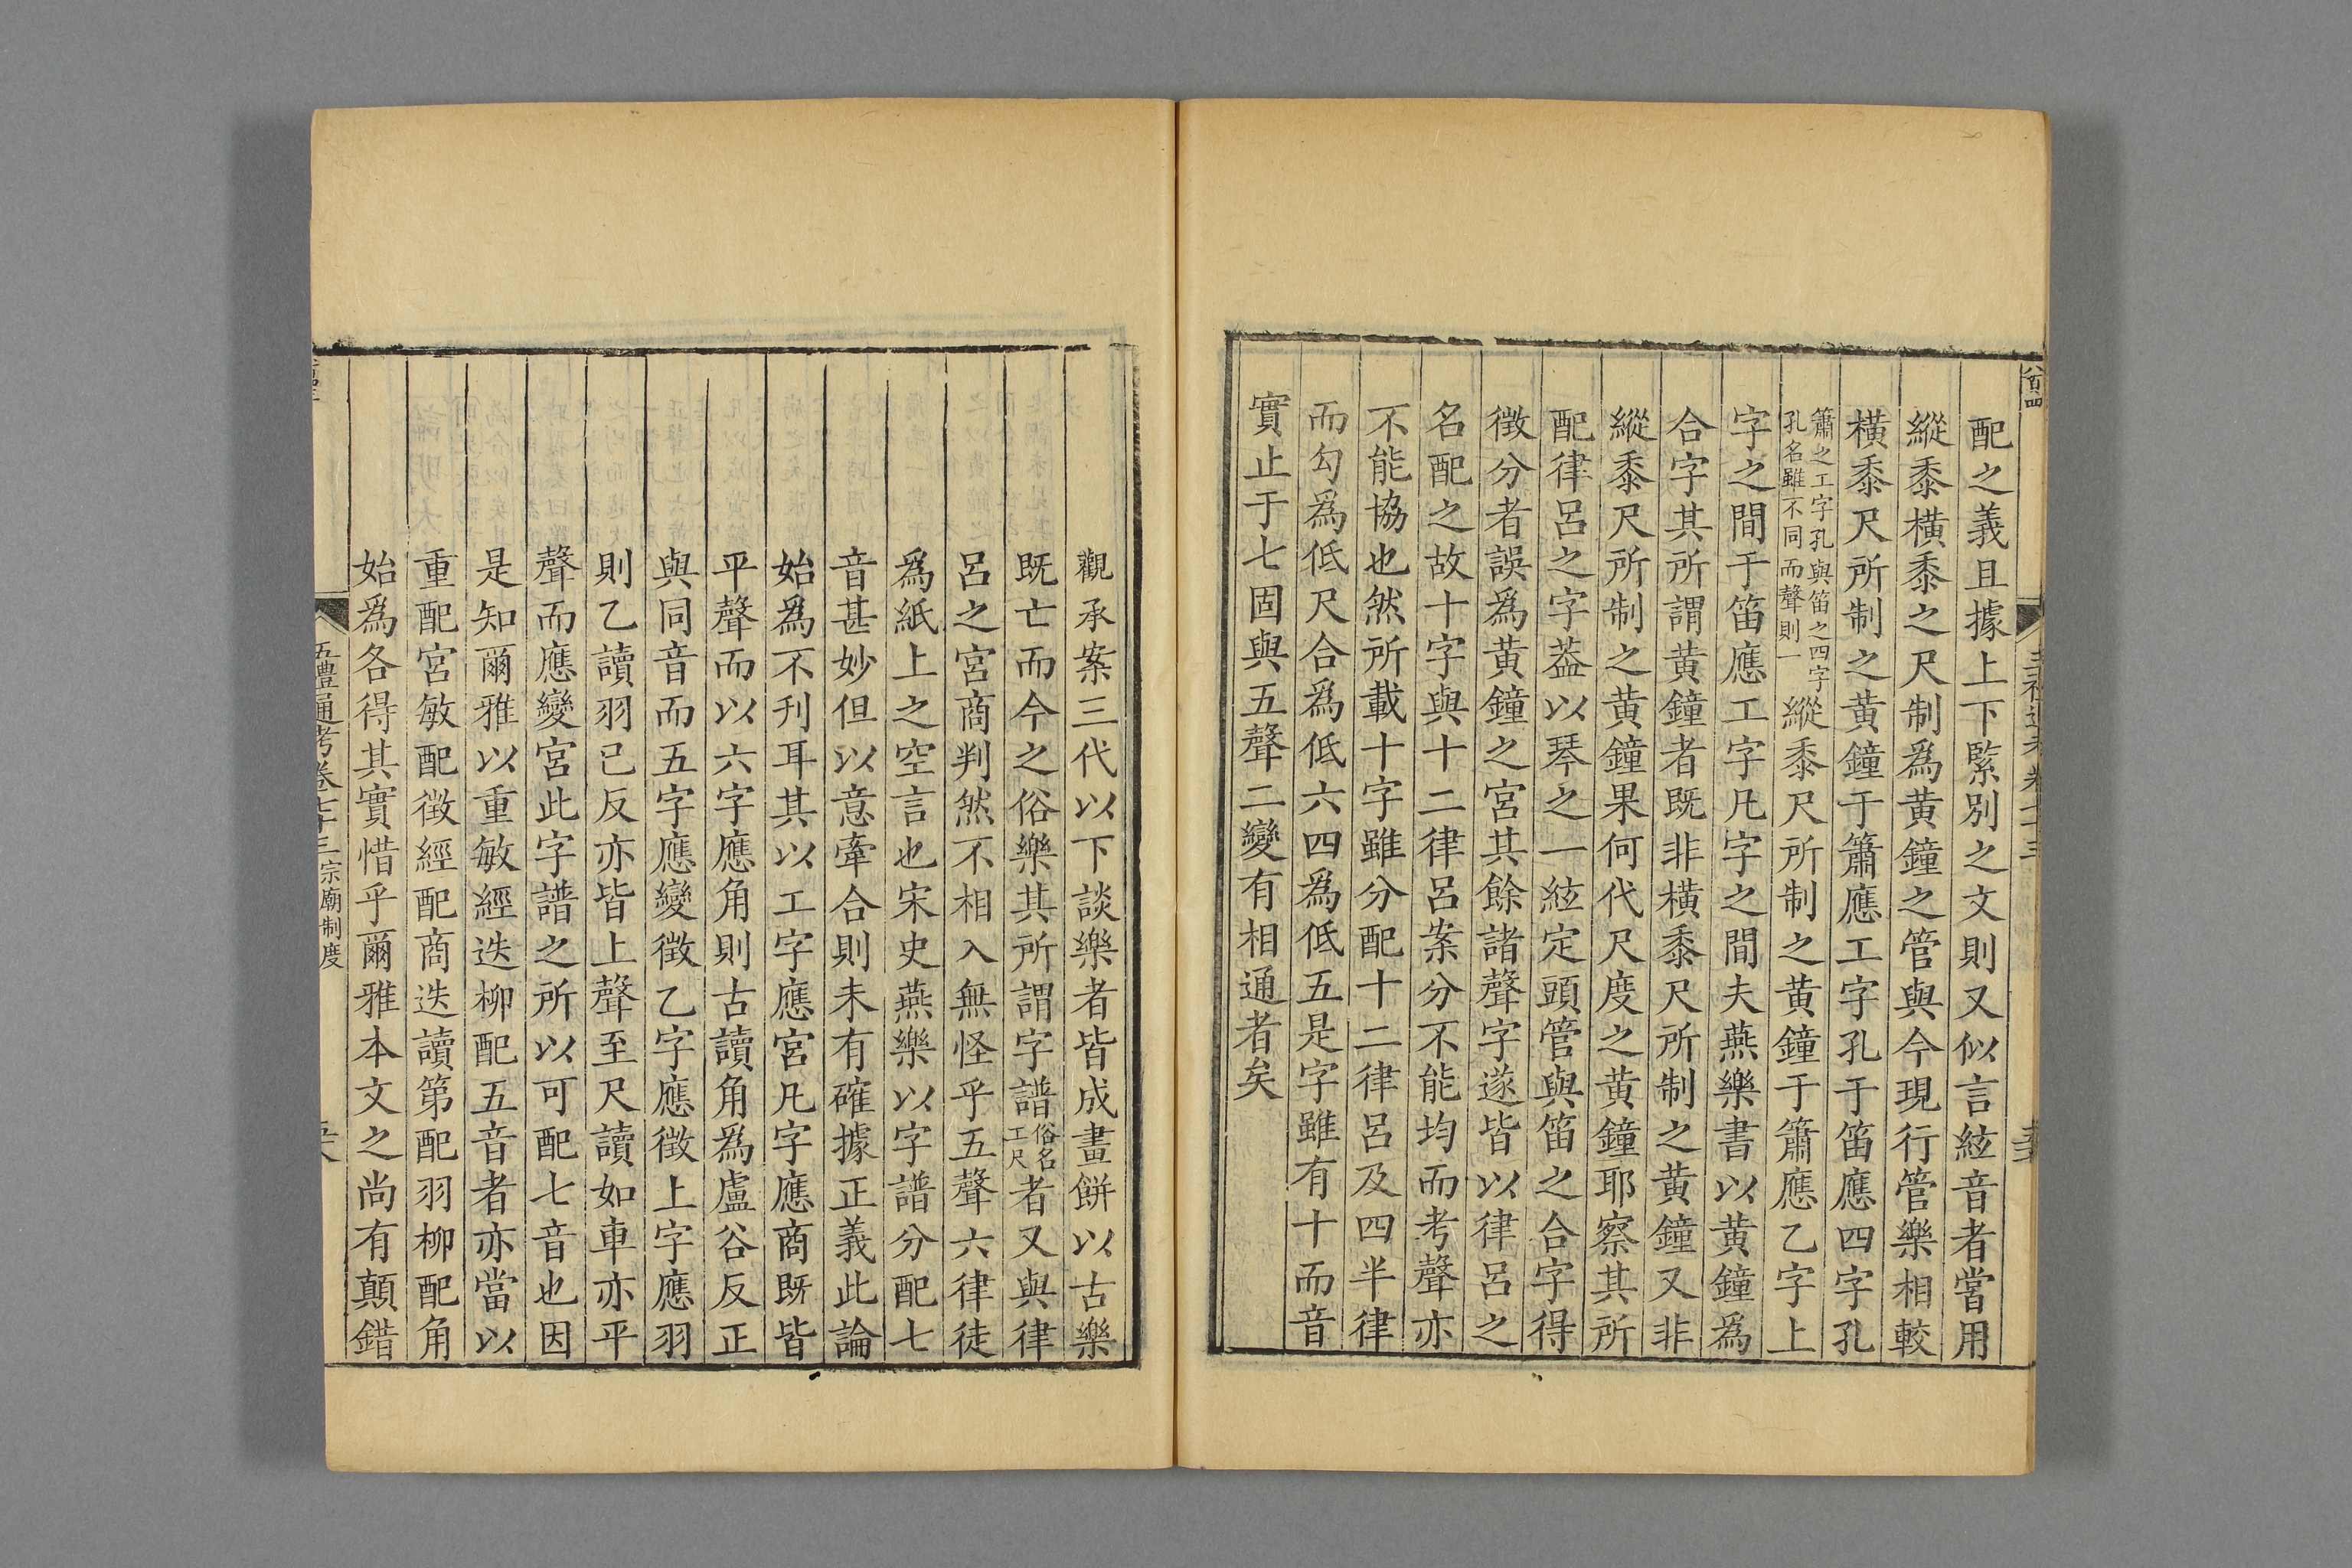 配之義且據上下緊别之文則又似言絃音者當用
縱黍橫黍之尺制爲黃鐘之管與今現行管樂相較
橫黍尺所制之黃鐘于簫應工字孔于笛應四字孔
簫之工字孔與笛之四字孔名雖不同而聲則一縱黍尺所制之黃鐘于簫應乙字上
字之間于笛應工字凡字之間夫燕樂書以黃鐘爲
合字其所謂黃鐘者既非橫黍尺所制之黃鐘又非
縱黍尺所制之黃鐘果何代尺度之黃鐘耶察其所
配律呂之字葢以琴之一絃定頭管與笛之合字得
徵分者誤爲黃鐘之宮其餘諸聲字遂皆以律呂之
名配之故十字與十二律呂案分不能均而考聲亦
不能協也然所載十字雖分配十二律呂及四半律
而勾爲低尺合爲低六四爲低五是字雖有十而音
實止于七固與五聲二變有相通者矣
觀承案三代以下談樂者皆成畫餅以古樂
既亡而今之俗樂其所謂字譜俗名工尺者又與律
呂之宮商判然不相入無怪乎五聲六律徒
爲紙上之空言也宋史燕樂以字譜分配七
音甚妙但以意牽合則未有確據正義此論
始爲不刊耳其以工字應宮凡字應商既皆
平聲而以六字應角則古讀角爲盧谷反正
與同音而五字應變徵乙字應徵上字應羽
則乙讀羽已反亦皆上聲至尺讀如車亦平
聲而應變宮此字譜之所以可配七音也因
是知爾雅以重敏經迭柳配五音者亦當以
重配宮敏配徵經配商迭讀第配羽柳配角
始爲各得其實惜乎爾雅本文之尚有顛錯
五禮通考卷七十三宗廟制度